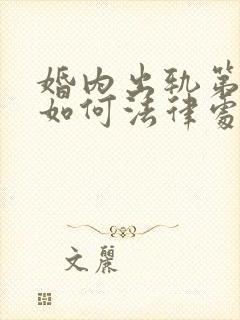 婚内出轨第
如何法律处
文丽